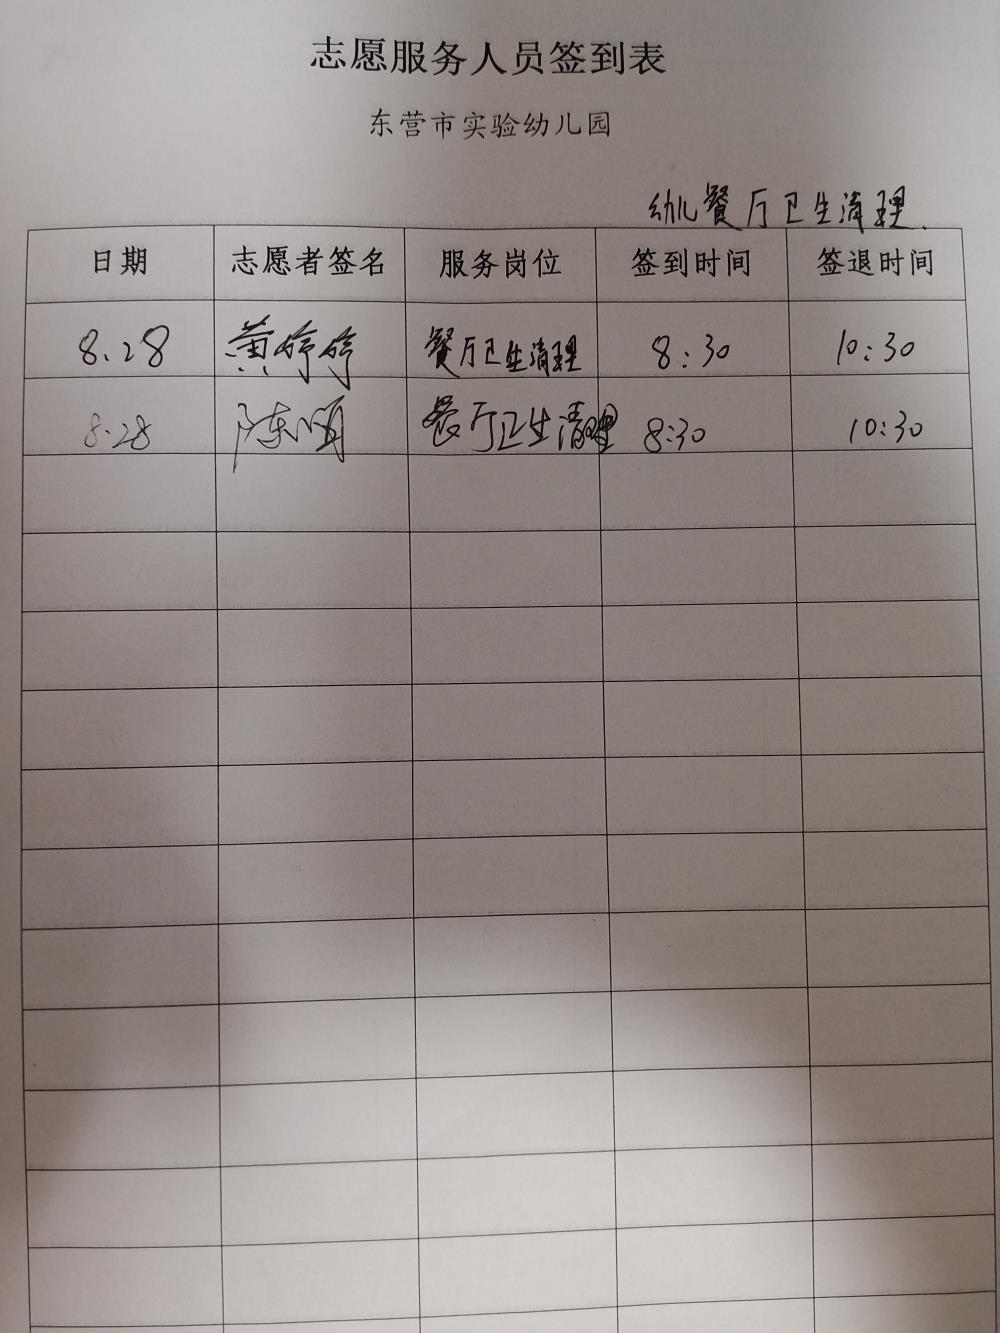 志愿服务人员签到表
东营市实验幼儿园
幼儿餐厅卫生清理.
日期 志愿者签名 服务岗位 签到时间 签退时间
8.28 黄婷婷 餐厅卫生清理 8:30 10:30
8.28 陈颂 餐厅卫生清理 8:30 10:30